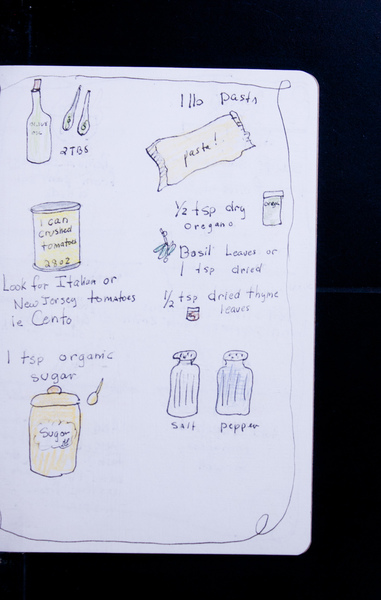 1 lb pasta
OLIVE
OIL
2 TBS
pasta!
1/2 tsp dry
oregano
1 can
crushed
tomatoes
28 oz
Basil Leaves or
1 tsp dried
Look for Italian or
New Jersey tomatoes
ie Cento
1/2 tsp dried thyme
leaves
1 tsp organic
sugar
Sugar
salt
pepper